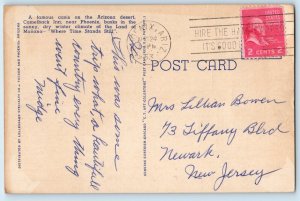 A famous oasis on the Arizona desert.
Camelback Inn, near Phoenix, basks in the
sunny, dry winter climate of the Land of
Manana—"Where Time Stands Still".
POST CARD
This was some
trip what a beautiful
country every thing
went fine
Midge
Mrs Lillian Bowen
73 Tiffany Blvd
Newark,
New Jersey
ARIZ.
HIRE THE
IT'S GOOD
2 CENTS 2